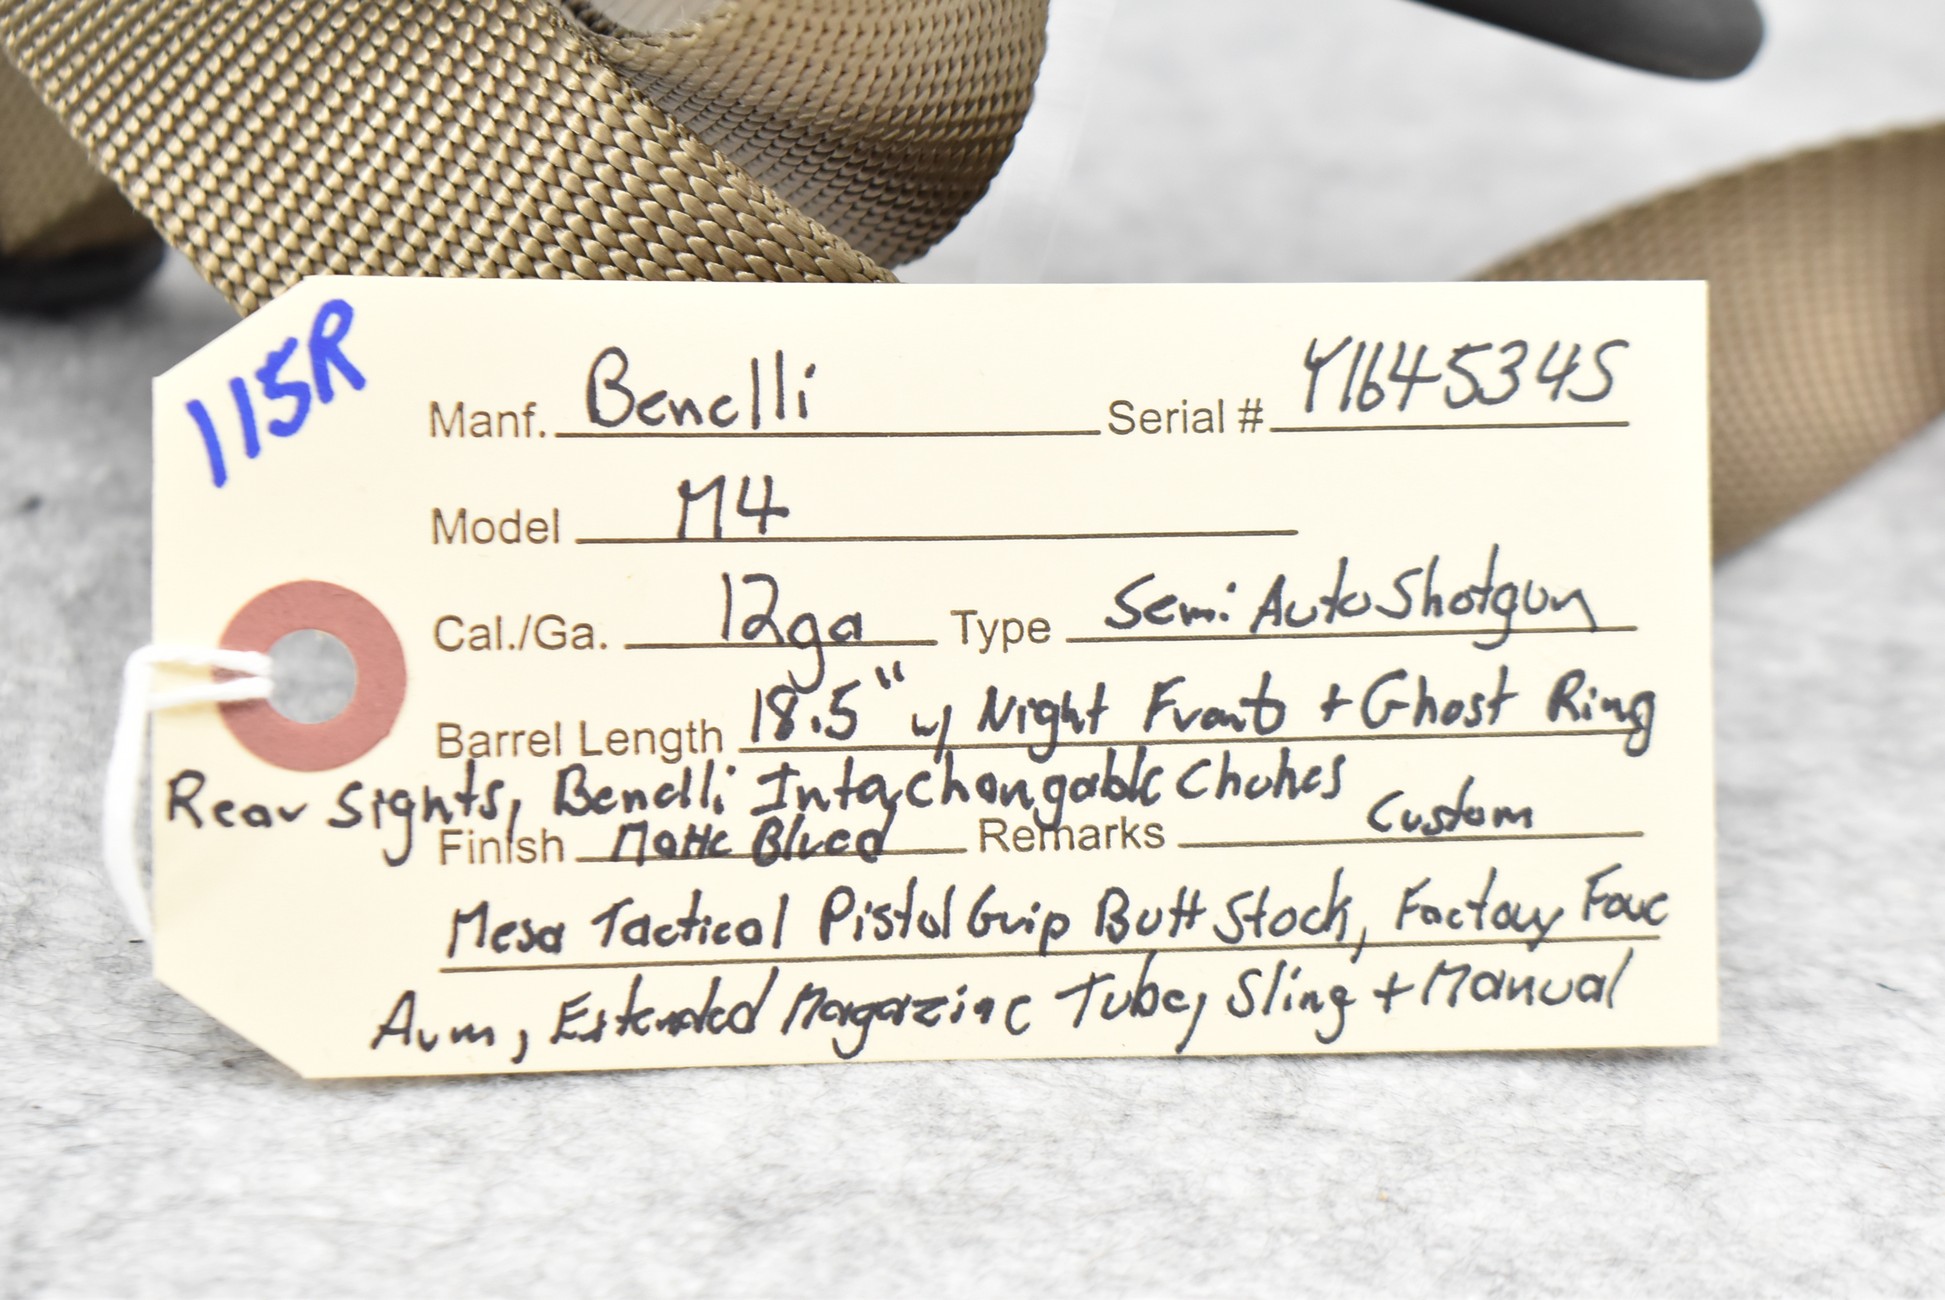 115R
Manf. Benelli Serial # Y164534S
Model M4
Cal./Ga. 12ga Type Semi Auto Shotgun
Barrel Length 18.5" w/ Night Front + Ghost Ring
Rear Sights, Benelli Interchangable Chokes
Finish Matte Blued Remarks Custom
Mesa Tactical Pistol Grip Butt Stock, Factory Fore
Arm, Extended Magazine Tube, Sling + Manual